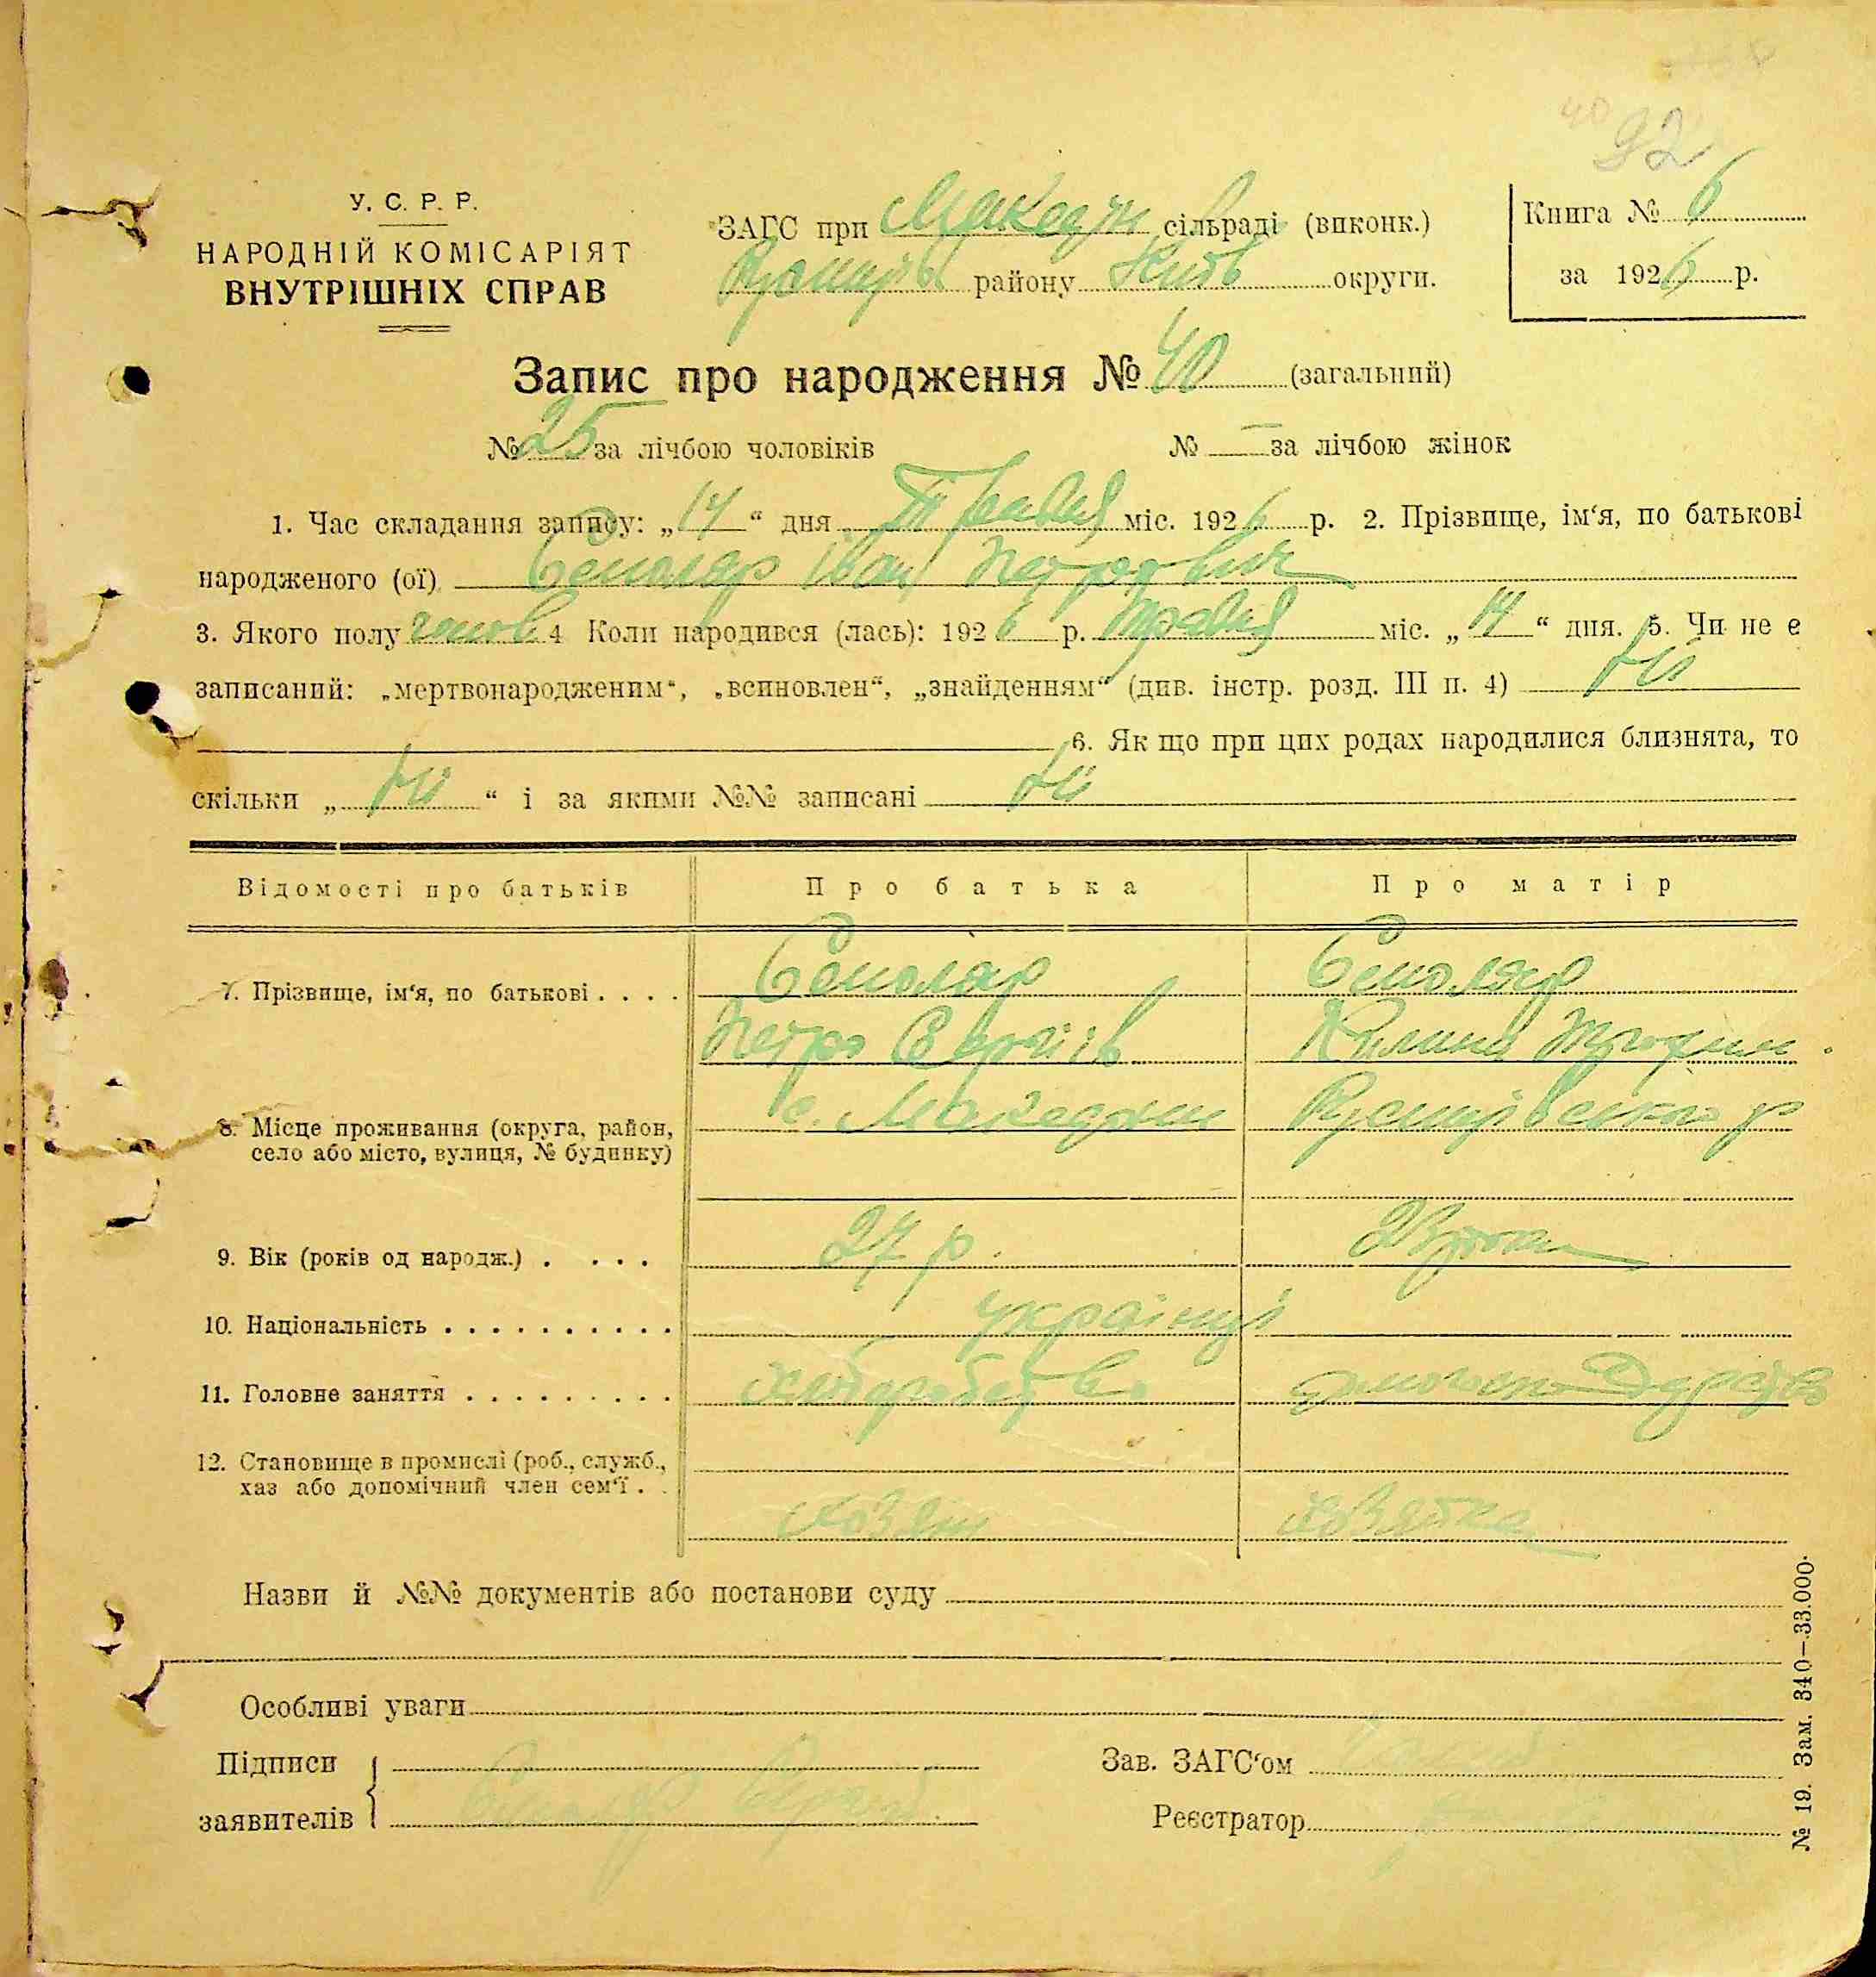 92
У. С. Р. Р.
НАРОДНІЙ КОМІСАРІЯТ
ВНУТРІШНІХ СПРАВ
ЗАГС при Македон сільраді (виконк.)
району Київ округи.
Книга № 6
за 1926 р.
Запис про народження № 40 (загальний)
№ 25 за лічбою чоловіків № — за лічбою жінок
1. Час складання запису: „14“ дня Травня міс. 1926 р. 2. Прізвище, ім‘я, по батькові
народженого (ої) Столяр Іван Петрович
3. Якого полу чолов 4 Коли народився (лась): 1926 р. Травня міс. „14“ дня. 5. Чи не є
записаний: „мертвонародженим“, „всиновлен“, „знайденням“ (див. інстр. розд. III п. 4) Ні
6. Як що при цих родах народилися близнята, то
скільки „Ні“ і за якими №№ записані Ні
Відомості про батьків Про батька Про матір
7. Прізвище, ім‘я, по батькові . . . . Столяр Столяр
Петро
8. Місце проживання (округа, район, с. Македони
село або місто, вулиця, № будинку)
9. Вік (років од народж.) . . . . 27 р.
10. Національність . . . . . . . . . . українці
11. Головне заняття . . . . . . . . . хліборобство
12. Становище в промислі (роб., служб.,
хаз або допомічний член сем‘ї . .
хозяін хозяйка
Назви й №№ документів або постанови суду
Особливі уваги
Підписи
заявителів Столяр
Зав. ЗАГС‘ом
Реєстратор
№ 19. Зам. 340—33.000.